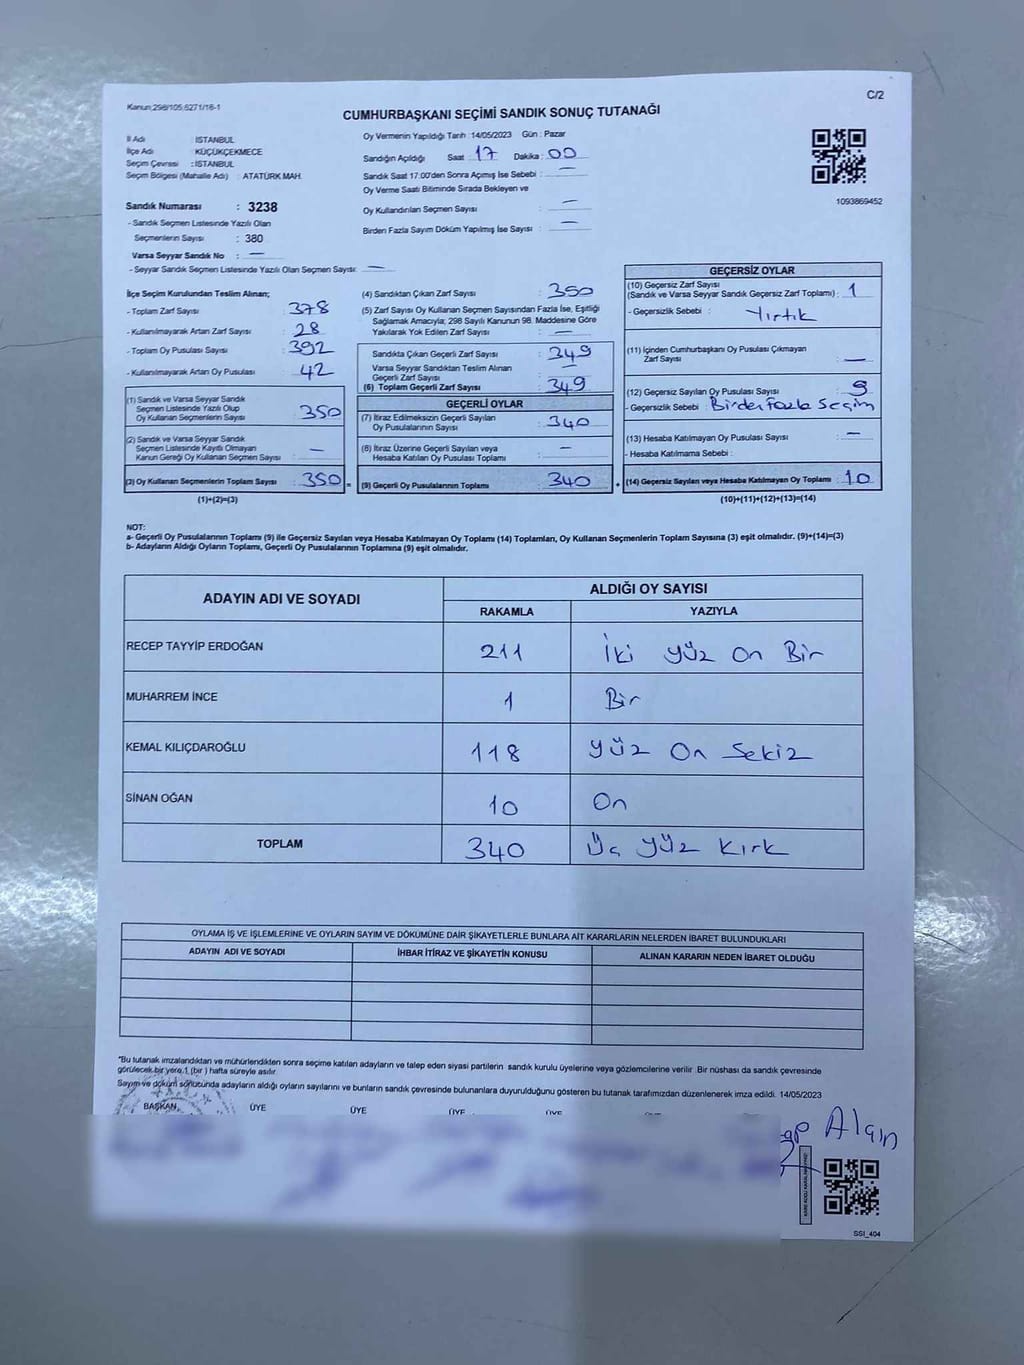 Kanun:298/105;6271/16-1
C/2
CUMHURBAŞKANI SEÇİMİ SANDIK SONUÇ TUTANAĞI
İl Adı : İSTANBUL
İlçe Adı : KÜÇÜKÇEKMECE
Seçim Çevresi : İSTANBUL
Seçim Bölgesi (Mahalle Adı) : ATATÜRK MAH.
Sandık Numarası : 3238
- Sandık Seçmen Listesinde Yazılı Olan
Seçmenlerin Sayısı : 380
Varsa Seyyar Sandık No : —
- Seyyar Sandık Seçmen Listesinde Yazılı Olan Seçmen Sayısı: —
Oy Vermenin Yapıldığı Tarih :14/05/2023 Gün : Pazar
Sandığın Açıldığı Saat : 17 Dakika : 00
Sandık Saat 17:00'den Sonra Açımış İse Sebebi : —
Oy Verme Saati Bitiminde Sırada Bekleyen ve
Oy Kullandırılan Seçmen Sayısı : —
Birden Fazla Sayım Döküm Yapılmış İse Sayısı : —
1093869452
İlçe Seçim Kurulundan Teslim Alınan;
- Toplam Zarf Sayısı : 378
- Kullanılmayarak Artan Zarf Sayısı : 28
- Toplam Oy Pusulası Sayısı : 392
- Kullanılmayarak Artan Oy Pusulası : 42
(1) Sandık ve Varsa Seyyar Sandık
Seçmen Listesinde Yazılı Olup
Oy Kullanan Seçmenlerin Sayısı : 350
(2) Sandık ve Varsa Seyyar Sandık
Seçmen Listesinde Kayıtlı Olmayan
Kanun Gereği Oy Kullanan Seçmen Sayısı : —
(3) Oy Kullanan Seçmenlerin Toplam Sayısı : 350
(1)+(2)=(3)
(4) Sandıktan Çıkan Zarf Sayısı : 350
(5) Zarf Sayısı Oy Kullanan Seçmen Sayısından Fazla İse, Eşitliği
Sağlamak Amacıyla; 298 Sayılı Kanunun 98. Maddesine Göre
Yakılarak Yok Edilen Zarf Sayısı : —
Sandıkta Çıkan Geçerli Zarf Sayısı : 349
Varsa Seyyar Sandıktan Teslim Alınan
Geçerli Zarf Sayısı : —
(6) Toplam Geçerli Zarf Sayısı : 349
GEÇERLİ OYLAR
(7) İtiraz Edilmeksizin Geçerli Sayılan
Oy Pusulalarının Sayısı : 340
(8) İtiraz Üzerine Geçerli Sayılan veya
Hesaba Katılan Oy Pusulası Toplamı : —
(9) Geçerli Oy Pusulalarının Toplamı : 340
GEÇERSİZ OYLAR
(10) Geçersiz Zarf Sayısı
(Sandık ve Varsa Seyyar Sandık Geçersiz Zarf Toplamı) : 1
- Geçersizlik Sebebi : Yırtık
(11) İçinden Cumhurbaşkanı Oy Pusulası Çıkmayan
Zarf Sayısı : —
(12) Geçersiz Sayılan Oy Pusulası Sayısı : 9
- Geçersizlik Sebebi : Birden Fazla Seçim
(13) Hesaba Katılmayan Oy Pusulası Sayısı : —
- Hesaba Katılmama Sebebi :
(14) Geçersiz Sayılan veya Hesaba Katılmayan Oy Toplamı : 10
(10)+(11)+(12)+(13)=(14)
NOT:
a- Geçerli Oy Pusulalarının Toplamı (9) ile Geçersiz Sayılan veya Hesaba Katılmayan Oy Toplamı (14) Toplamları, Oy Kullanan Seçmenlerin Toplam Sayısına (3) eşit olmalıdır. (9)+(14)=(3)
b- Adayların Aldığı Oyların Toplamı, Geçerli Oy Pusulalarının Toplamına (9) eşit olmalıdır.
ADAYIN ADI VE SOYADI
ALDIĞI OY SAYISI
RAKAMLA YAZIYLA
RECEP TAYYİP ERDOĞAN 211 İki yüz On Bir
MUHARREM İNCE 1 Bir
KEMAL KILIÇDAROĞLU 118 yüz On Sekiz
SİNAN OĞAN 10 On
TOPLAM 340 Üç yüz Kırk
OYLAMA İŞ VE İŞLEMLERİNE VE OYLARIN SAYIM VE DÖKÜMÜNE DAİR ŞİKAYETLERLE BUNLARA AİT KARARLARIN NELERDEN İBARET BULUNDUKLARI
ADAYIN ADI VE SOYADI İHBAR İTİRAZ VE ŞİKAYETİN KONUSU ALINAN KARARIN NEDEN İBARET OLDUĞU
*Bu tutanak imzalandıktan ve mühürlendikten sonra seçime katılan adayların ve talep eden siyasi partilerin sandık kurulu üyelerine veya gözlemcilerine verilir. Bir nüshası da sandık çevresinde
görülecek bir yere 1 (bir ) hafta süreyle asılır.
Sayım ve döküm sonucunda adayların aldığı oyların sayılarını ve bunların sandık çevresinde bulunanlara duyurulduğunu gösteren bu tutanak tarafımızdan düzenlenerek imza edildi. 14/05/2023
BAŞKAN ÜYE ÜYE ÜYE ÜYE
SSI_404